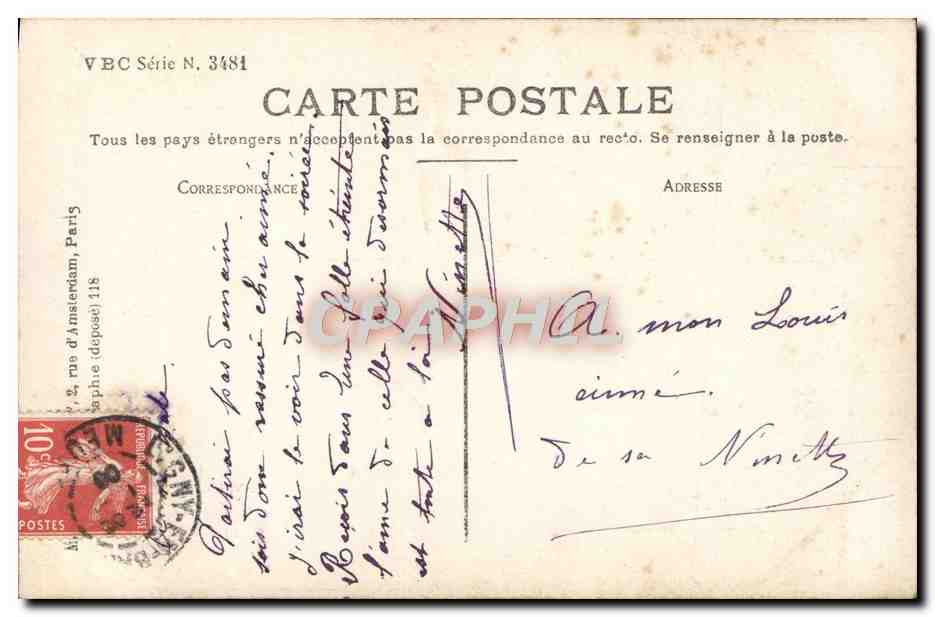 VBC Série N. 3481
CARTE POSTALE
Tous les pays étrangers n'acceptent pas la correspondance au recto. Se renseigner à la poste.
CORRESPONDANCE
ADRESSE
2, rue d'Amsterdam, Paris
aphie (déposé) 118
Partirai pas demain
sois donc rassuré cher aimé.
j'irai te voir dans la soirée.
Reçois dans une folle étreinte
l'âme de celle qui désormais
est toute à toi
Ninette
A mon Louis
aimé.
de sa Ninette
10c
REPUBLIQUE FRANÇAISE
POSTES
CPAPHIL